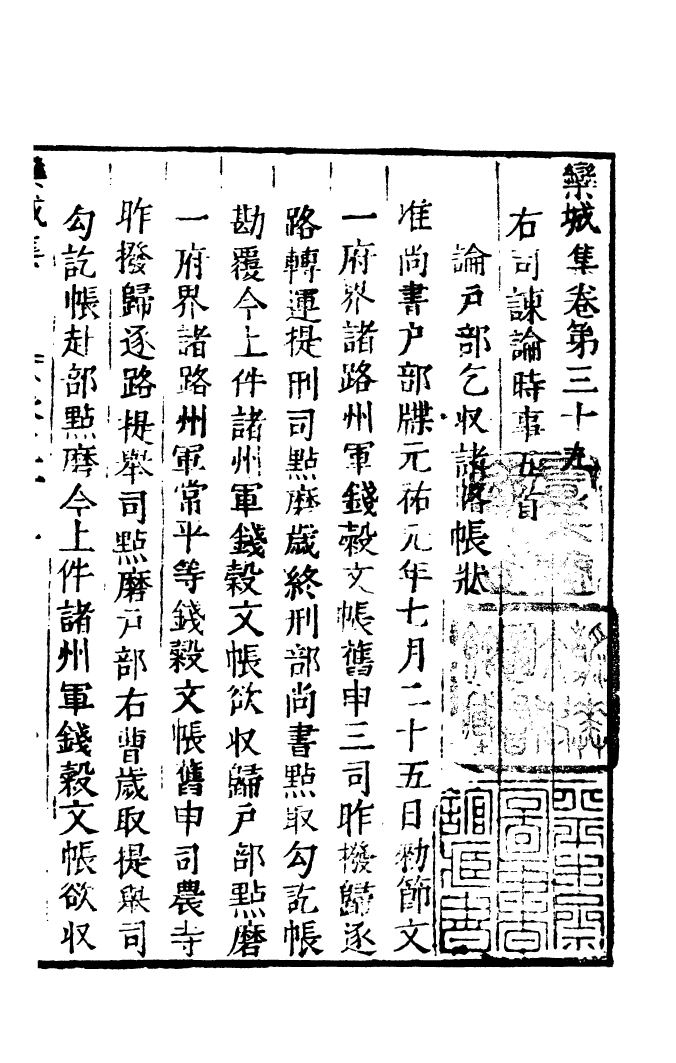 欒城集卷第三十九
右司諫論時事五首
論户部乞収諸路帳狀
准尚書户部牒元祐元年七月二十五日勑節文
一府界諸路州軍錢糓文帳舊申三司昨撥歸逐
路轉運提刑司點磨歲終刑部尚書點取勾訖帳
勘覆今上件諸州軍錢穀文帳欲収歸户部點磨
一府界諸路州軍常平等錢糓文帳舊申司農寺
昨撥歸逐路提舉司點磨户部右曹歲取提舉司
勾訖帳赴部點磨今上件諸州軍錢穀文帳欲収
欒城集